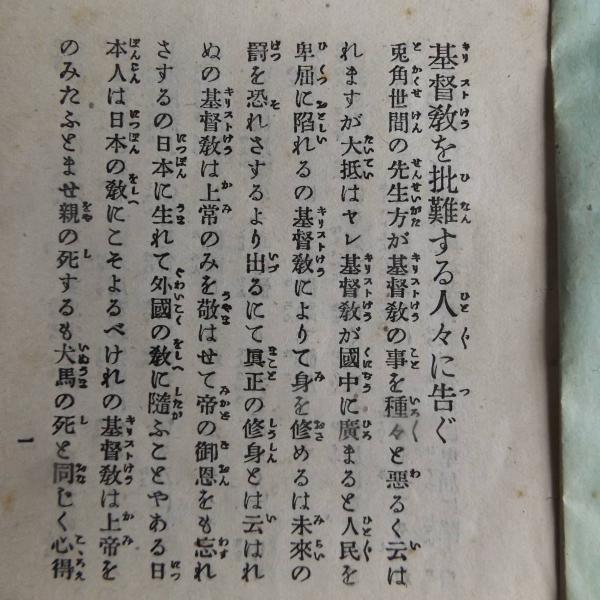 基督敎を批難する人々に告ぐ
兎角世間の先生方が基督敎の事を種々と惡るく云は
れますが大抵はヤレ基督敎が國中に廣まると人民を
卑屈に陷れるの基督敎によりて身を修めるは未來の
罰を恐れさするより出るにて眞正の修身とは云はれ
ぬの基督敎は上常のみを敬はせて帝の御恩をも忘れ
さするの日本に生れて外國の敎に隨ふことやある日
本人は日本の敎にこそよるべけれの基督敎は上帝を
のみたふとませ親の死するも犬馬の死と同じく心得
一